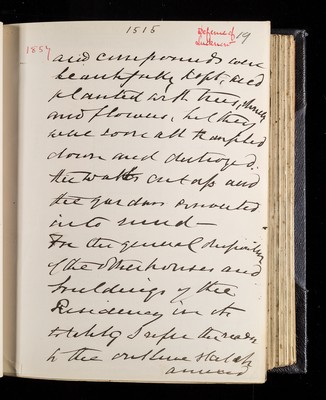 1515
Defence of
Lucknow
19
1857
and compounds were
beautifully kept, and
planted with trees, shrubs
and flowers, but they
were soon all trampled
down and destroyed.
the walks cut up and
the gardens converted
into mud —
For the general disposition
of the other houses and
buildings of the
Residency in its
totality I refer the reader
to the outline sketch
annexed